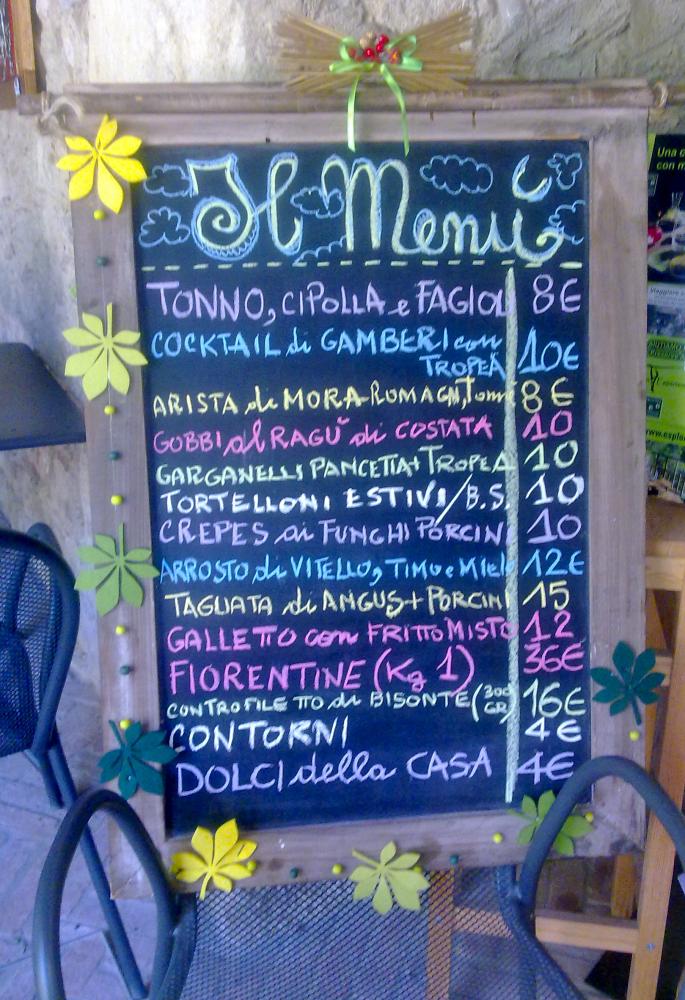 Il Menu
TONNO, CIPOLLA e FAGIOL 8€
COCKTAIL di GAMBERI con
TROPEA 10€
ARISTA di MORA ROMAGN, 8€
GOBBI al RAGÙ di COSTATA 10
GARGANELLI PANCETTA+TROPEA 10
TORTELLONI ESTIVI/B.S. 10
CREPES ai FUNGHI PORCINI 10
ARROSTO di VITELLO, TIMO e Miele 12€
TAGLIATA di ANGUS+PORCINI 15
GALLETTO con FRITTO MISTO 12
FIORENTINE (Kg 1) 36€
CONTROFILETTO di BISONTE (300 GR) 16€
CONTORNI 4€
DOLCI della CASA 4€
Una c
con m